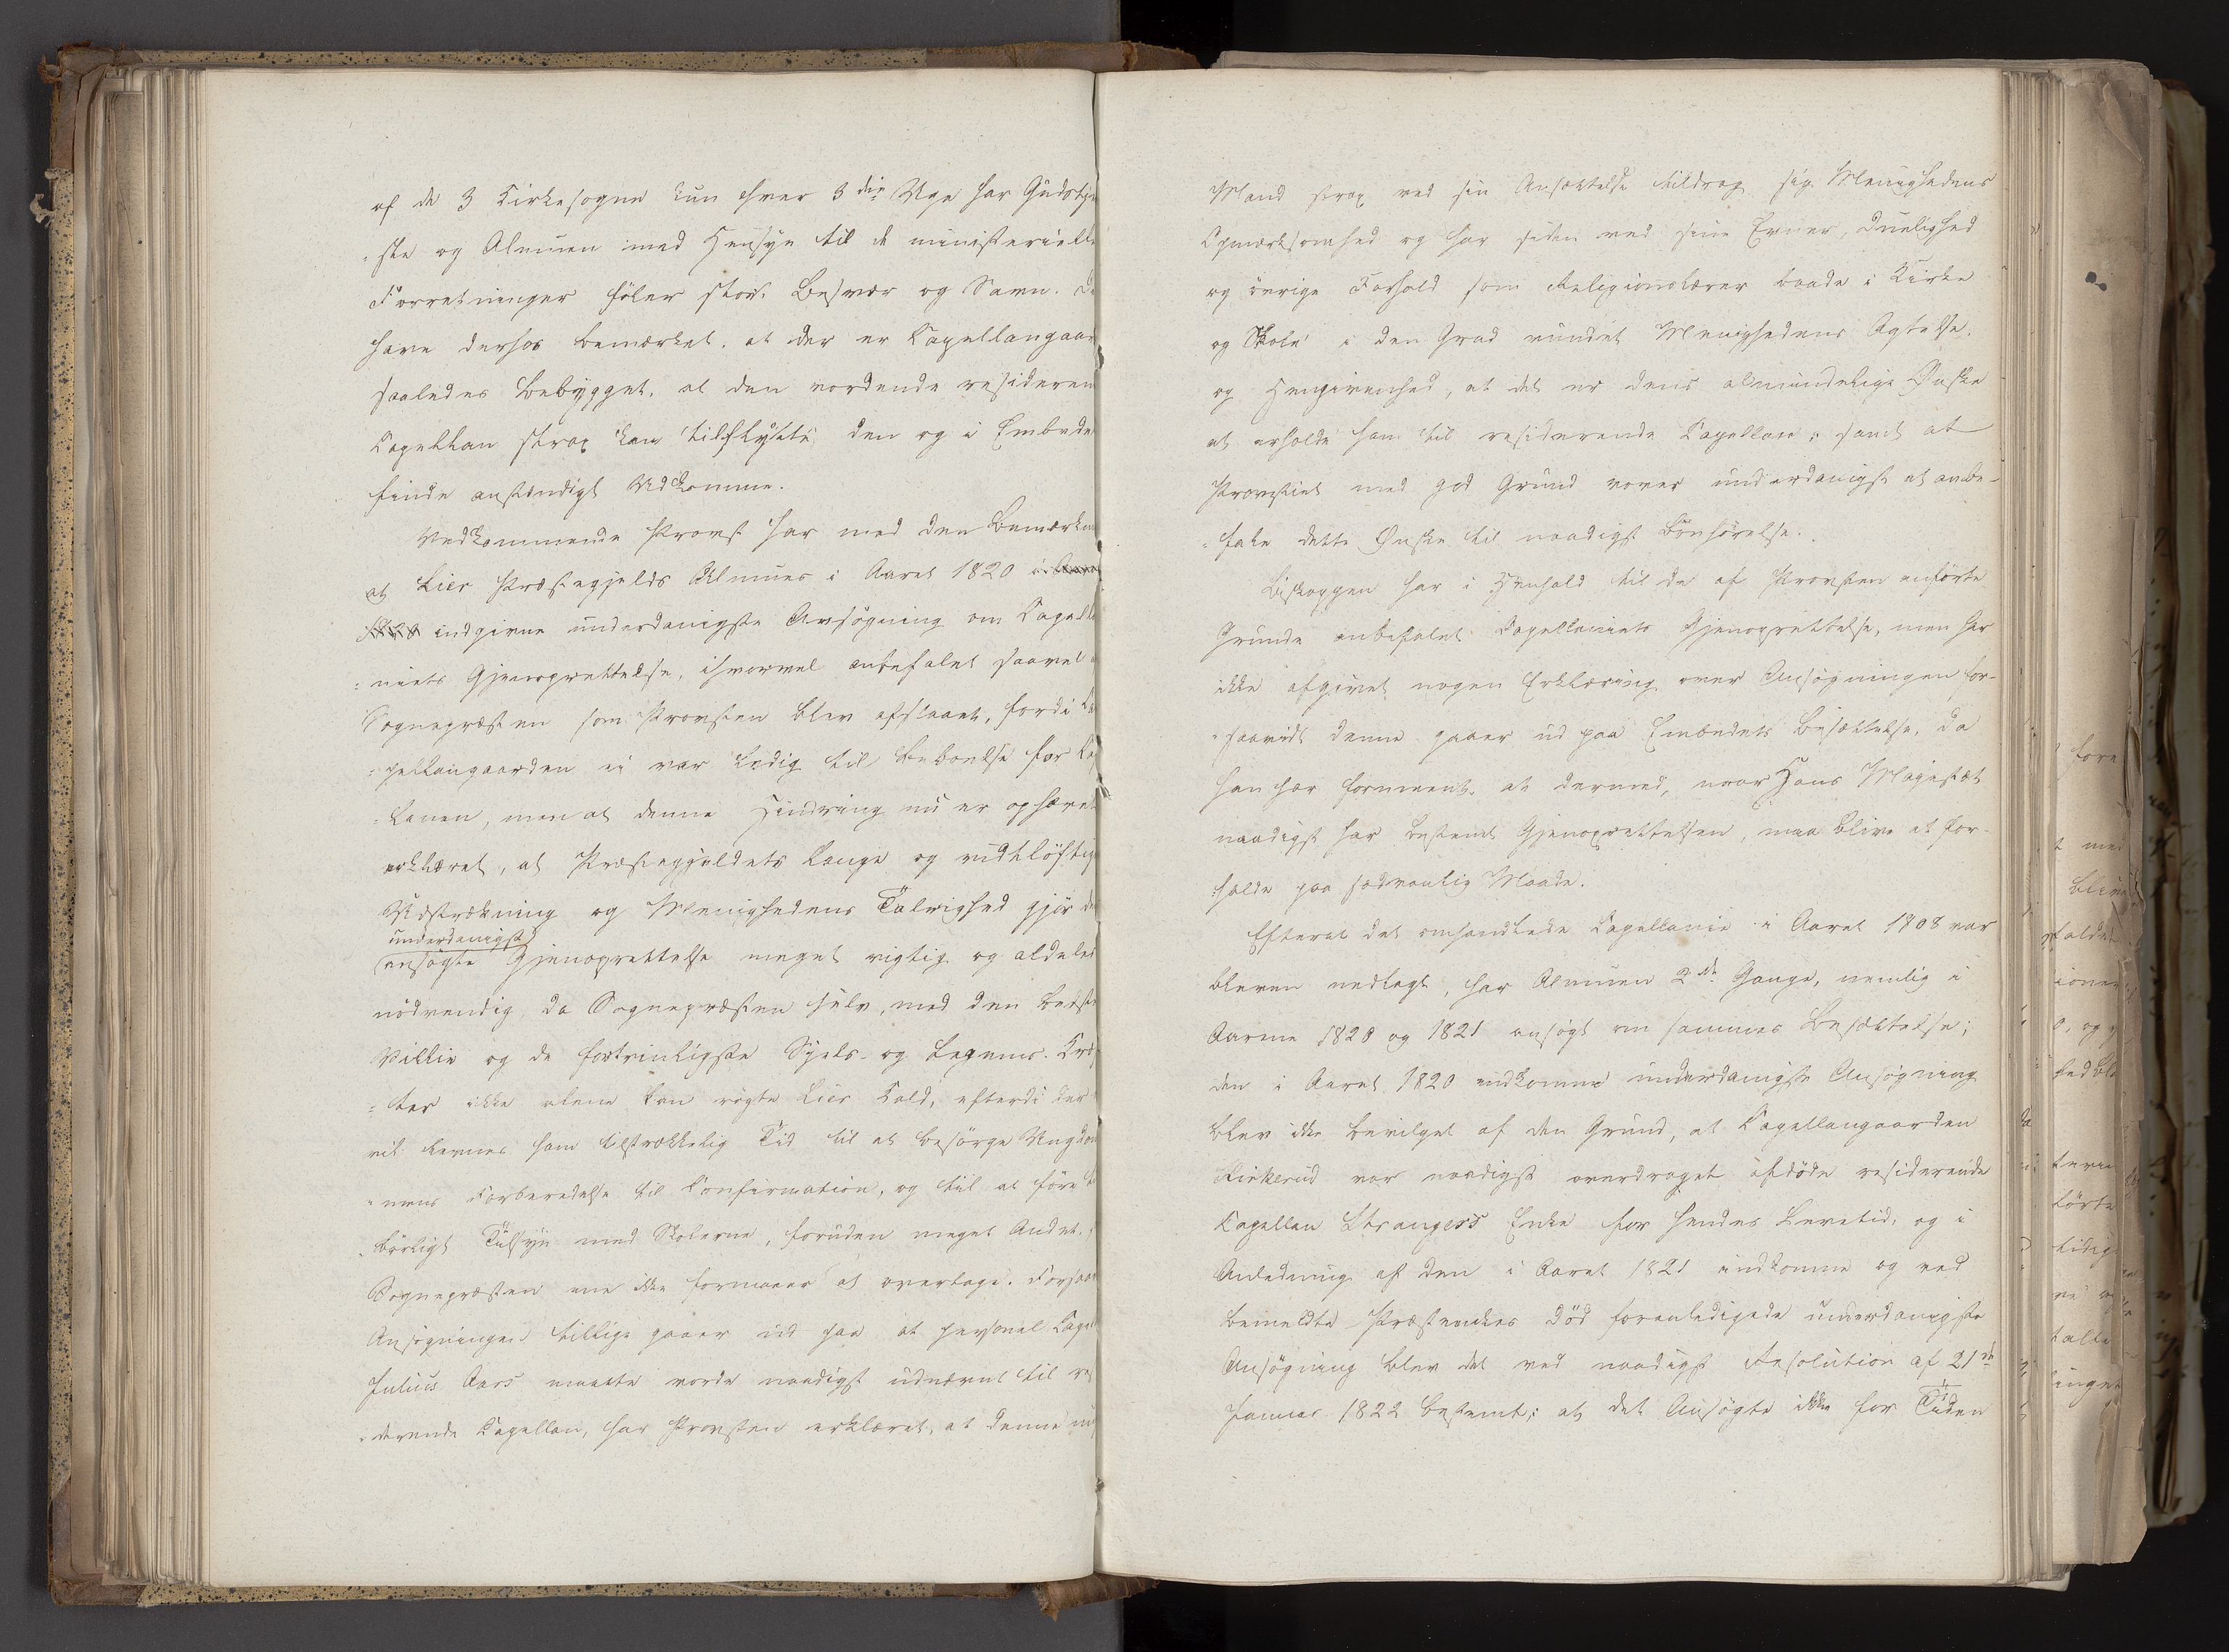 af de 3 Kirkesogne kun hver 3die Uge har Gudstje
„ste og Almuen med Hensyn til de ministerielle
Forretninger føler stort Besvær og Savn. De
have derhos bemærket, at der er Capellangaard
saaledes bebygget, at den vordende residerende
Capellan strax kan tilflytte den og i Embede
finde anstændigt Udkomme.
Vedkommende Provst har med den Bemærkn
at Liers Præstegjelds Almues i Aaret 1820
indgivne underdanigste Ansøgning om Capella
„niets Gjenoprettelse, ihvorvel anbefalet saavel
Sognepræsten som Provsten blev afslaaet, fordi Ca
„pellangaarden ei var ledig til Beboelse for Cap
„lanen, men at denne Hindring nu er ophævet
erklæret, at Præstegjeldets lange og vidtløftige
Udstrækning og Menighedens Talrighed gjør de
underdanigst
ansøgte Gjenoprettelse meget vigtig og aldeles
nödvendig, da Sognepræsten selv, med den bedste
Villie og de fortrinligste Sjels- og Legems-Kræf
„ter ikke alene kan røgte Liers Kald, efterdi der
ei levnes ham tilstrækkelig Tid til at besörge Ungdom
„mens Forberedelse til Confirmation, og til at före
börligt Tilsyn med Skolerne, foruden meget Andet,
Sognepræsten ene ikke formaaer at overtage. Forsaav
Ansøgningen tillige gaaer ud paa at personel Capel
Julius Aars maatte vorde naadigst udnævnt til res
„derende Capellan, har Provsten erklæret, at denne
Mand strax ved sin Ansættelse tildrog sig Menighedens
Opmærksomhed og har siden ved sine Evner, Duelighed
og övrige Forhold som Religionslærer baade i Kirke
og Skole i den Grad vundet Menighedens Agtelse
og Hengivenhed, at det er dens almindelige Ønske
at erholde ham til residerende Capellan; samt at
Provstiet med god Grund vover underdanigst at anbe-
„fale dette Ønske til naadigst Bönhörelse.
Biskoppen har i Henhold til de af Provsten anførte
Grunde anbefalet Capellaniets Gjenoprettelse, men har
ikke afgivet nogen Erklæring over Ansøgningen for-
„saavidt denne gaaer ud paa Embedets Besættelse, da
han har formeent, at dermed, naar Hans Majestæt
naadigst har bestemt Gjenoprettelsen, maa blive at for-
„holde paa sædvanlig Maade.
Efterat det omhandlede Capellanie i Aaret 1808 var
bleven nedlagt, har Almuen 2de Gange, nemlig i
Aarene 1820 og 1821 ansøgt om sammes Besættelse;
den i Aaret 1820 indkomne underdanigste Ansøgning
blev ikke bevilget af den Grund, at Capellangaarden
Kirkerud var naadigst overdraget afdöde residerende
Capellan Strangers Enke for hendes Levetid, og i
Anledning af den i Aaret 1821 indkomne og ved
bemeldte Præsteenkes Död foranledigede underdanigste
Ansøgning blev det ved naadigst Resolution af 21de
Januar 1822 bestemt, at det Ansøgte ikke for Tiden